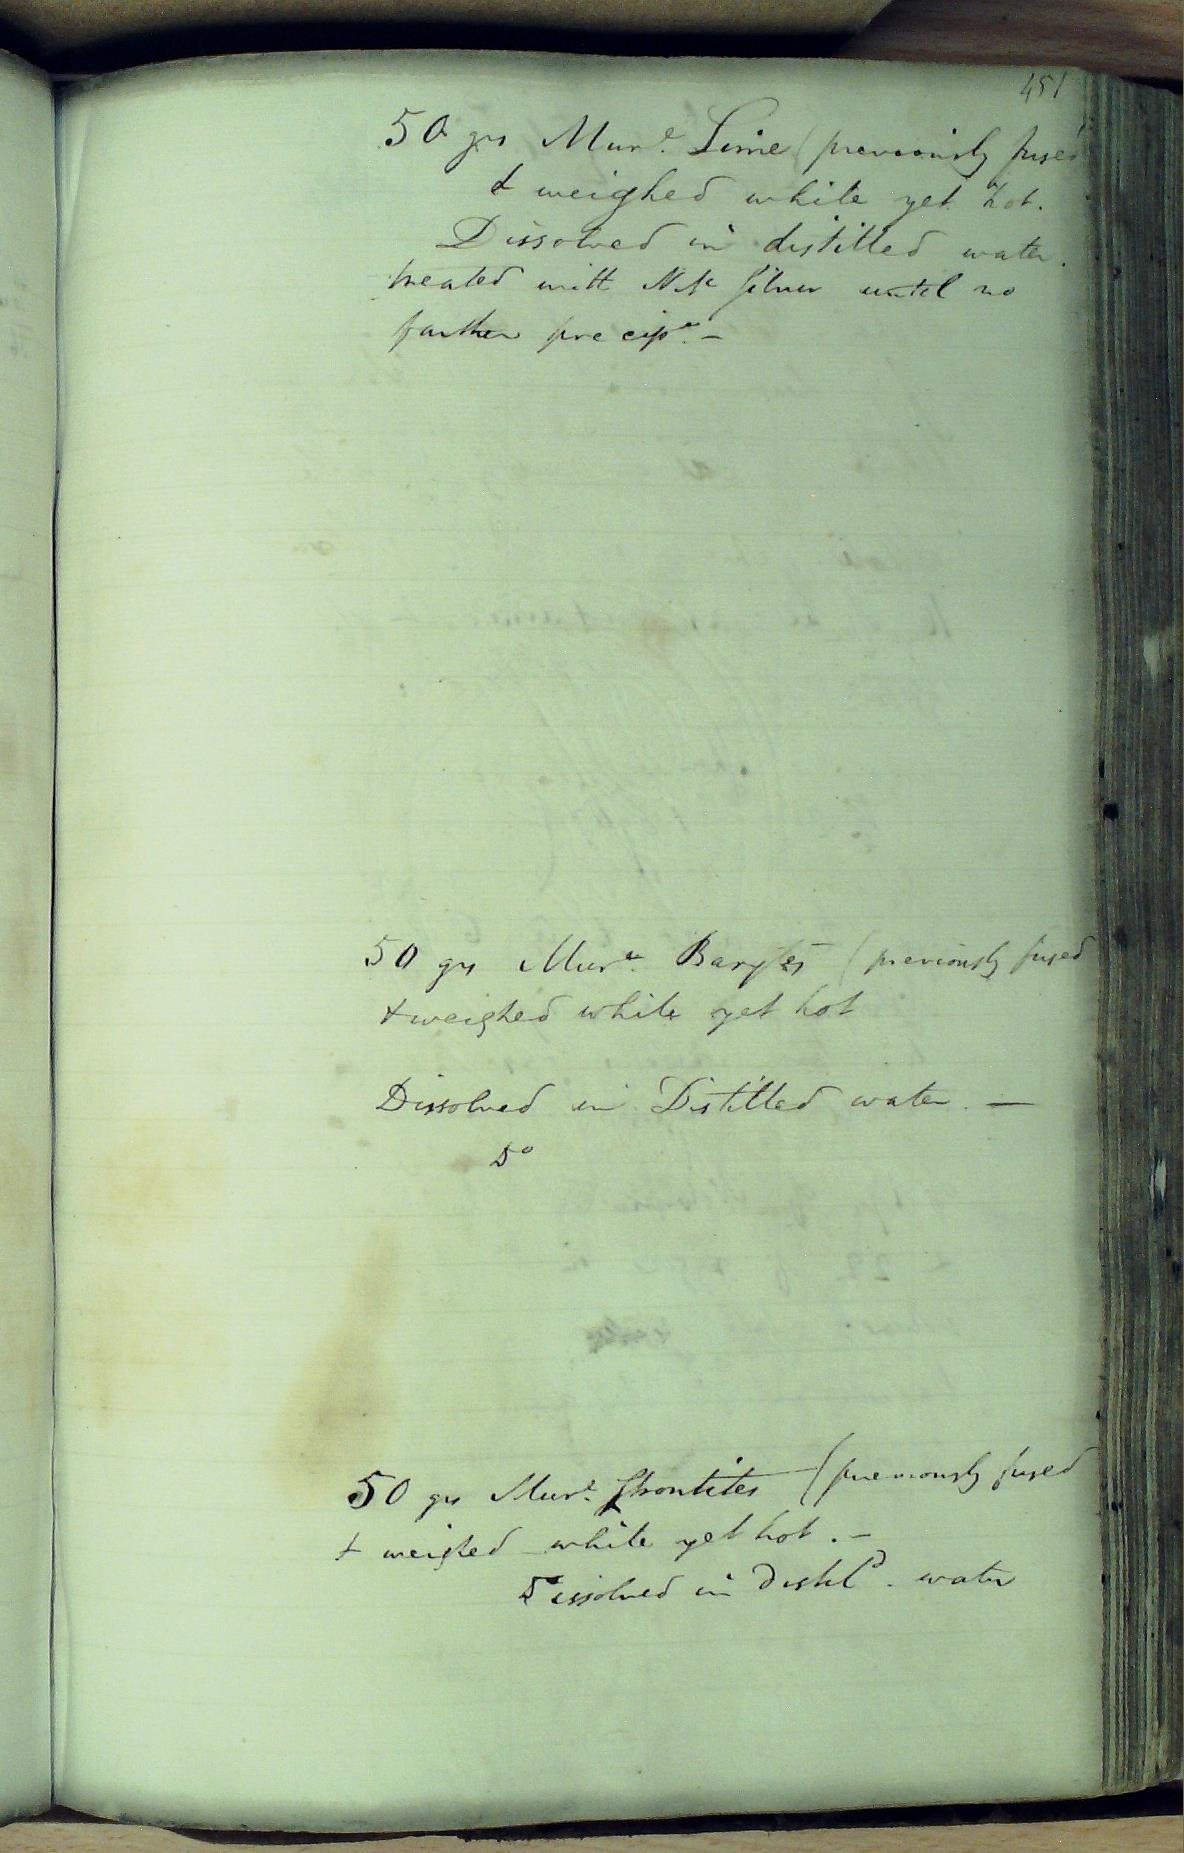 451
50 grs Mure. Lime (previously fused
& weighed while yet hot.
Dissolved in distilled water.
treated with Nite Silver until no
farther precipn. —
50 grs Mure. Barytes (previously fused
& weighed while yet hot
Dissolved in Distilled water. —
Do
50 grs Mure. Strontites (previously fused
& weighed while yet hot. —
Dissolved in Distld. water